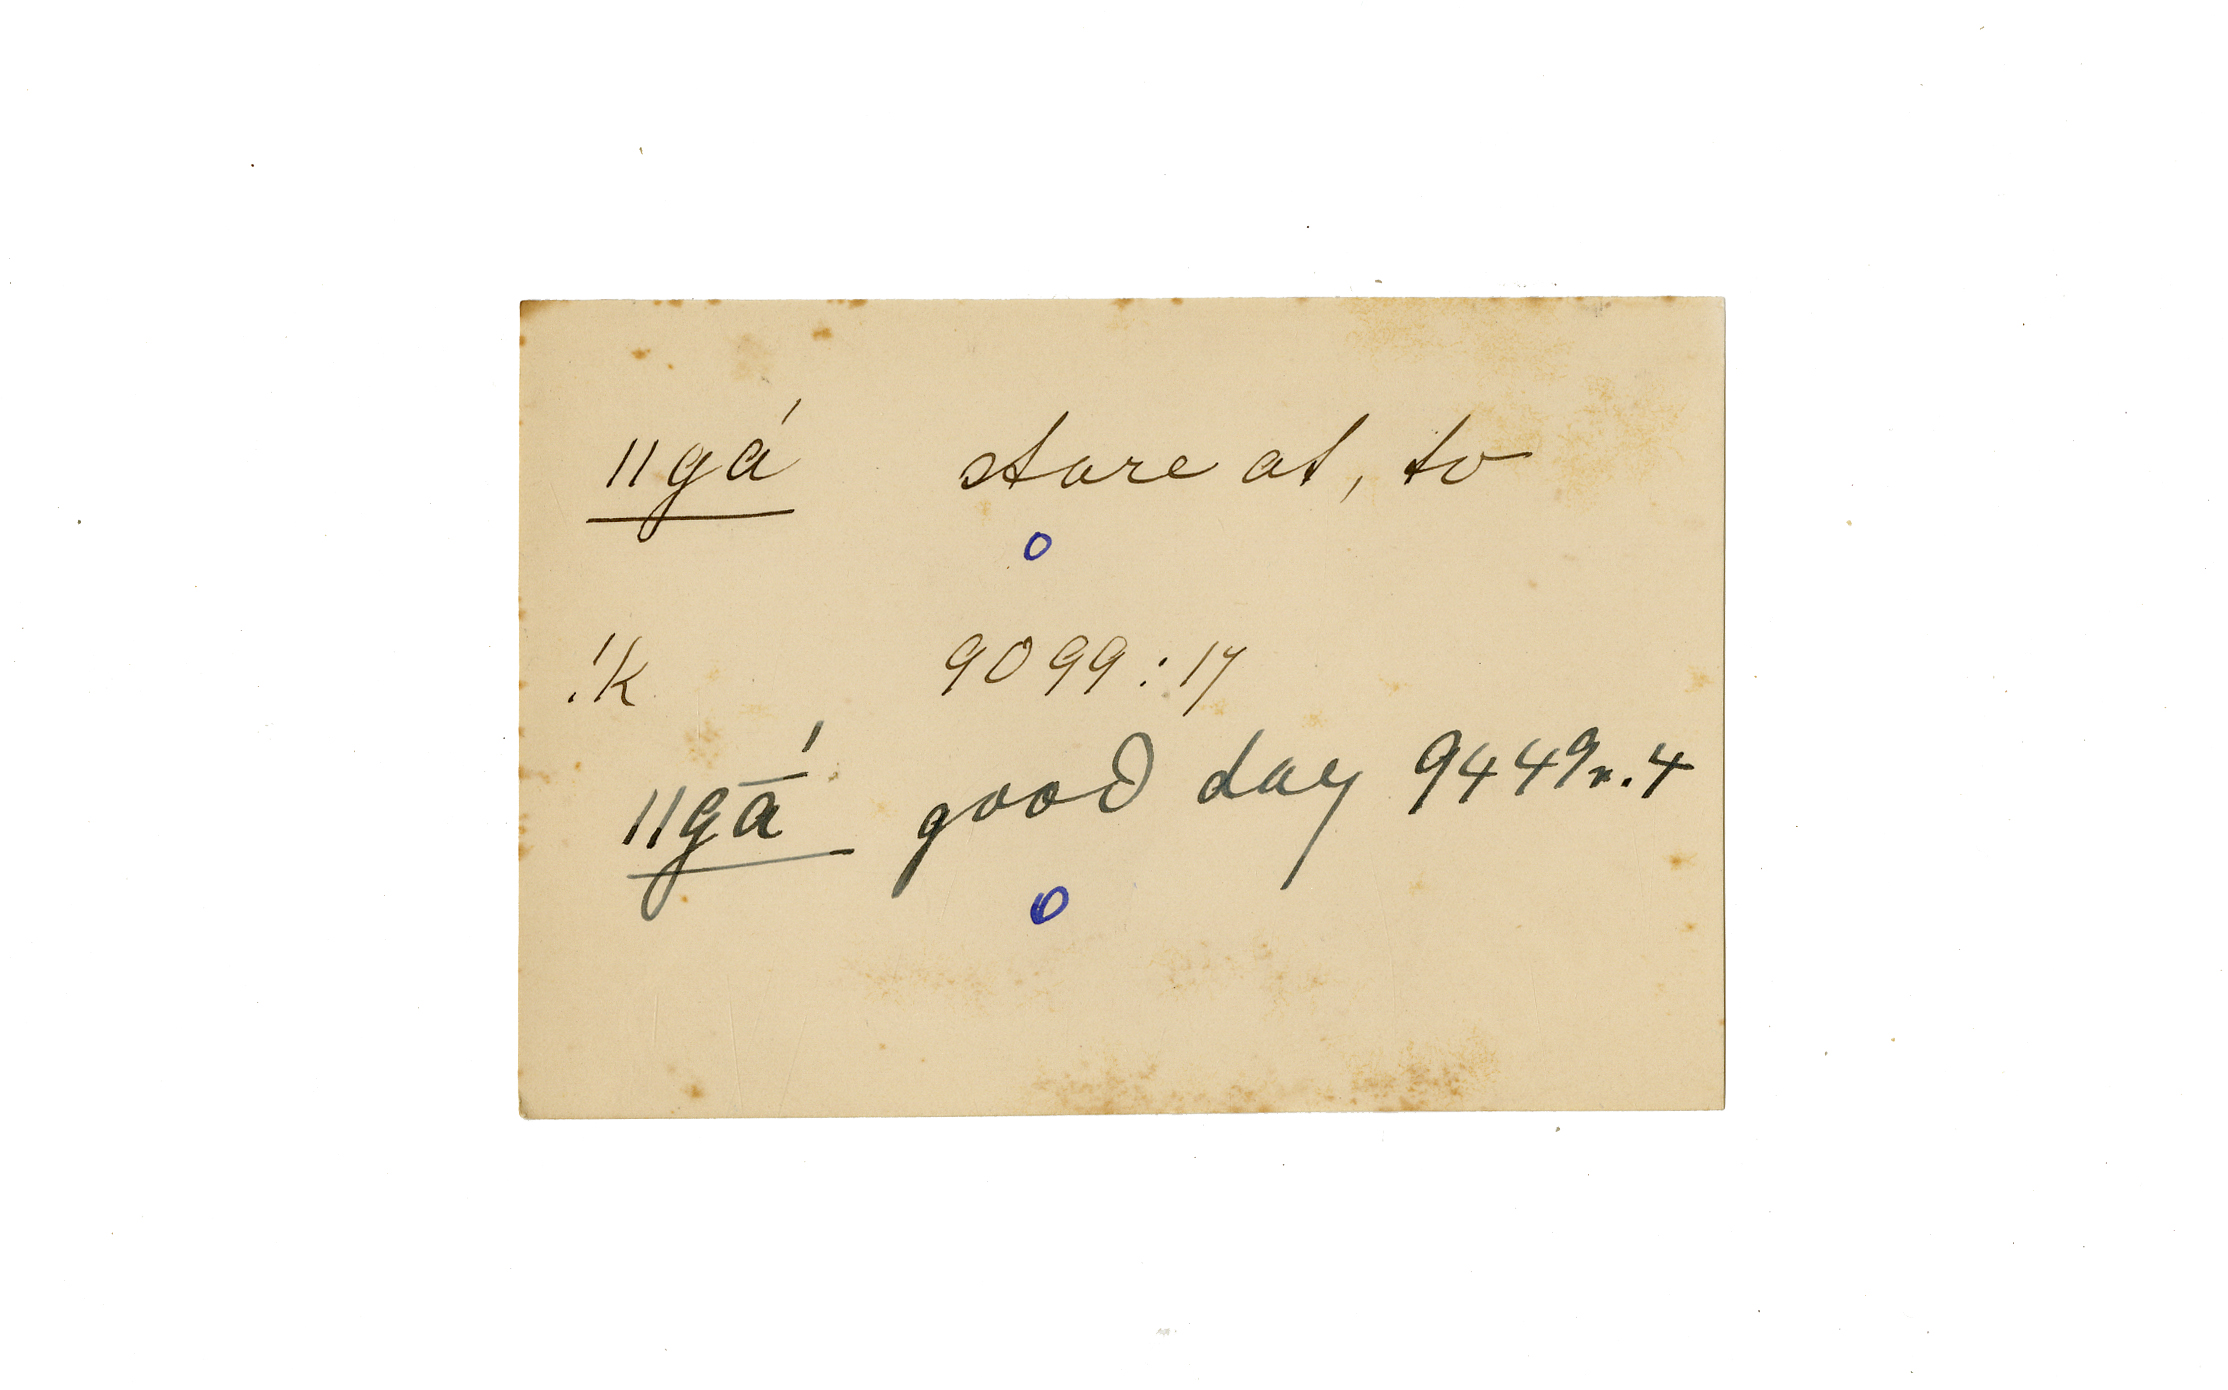 ǁgá stare at, to
o
!k 9099:17
ǁgā́ good day 9449r.4
o